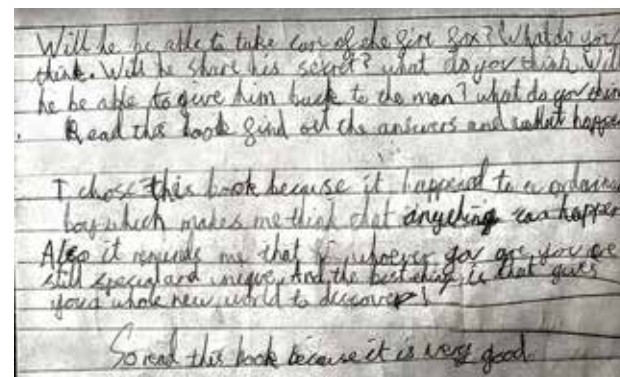 Will he be able to take care of the fire fox? What do you
think. Will he share his secret? what do you think Will
he be able to give him back to the man? what do you thin
Read this book find out the answers and what happe
I chose this book because it happend to a ordinar
boy which makes me think that anything can happen
Also it reminds me that if whoever you are you are
still special and unique. And the best thing is that gives
you a whole new world to discover!
So read this book because it is very good.